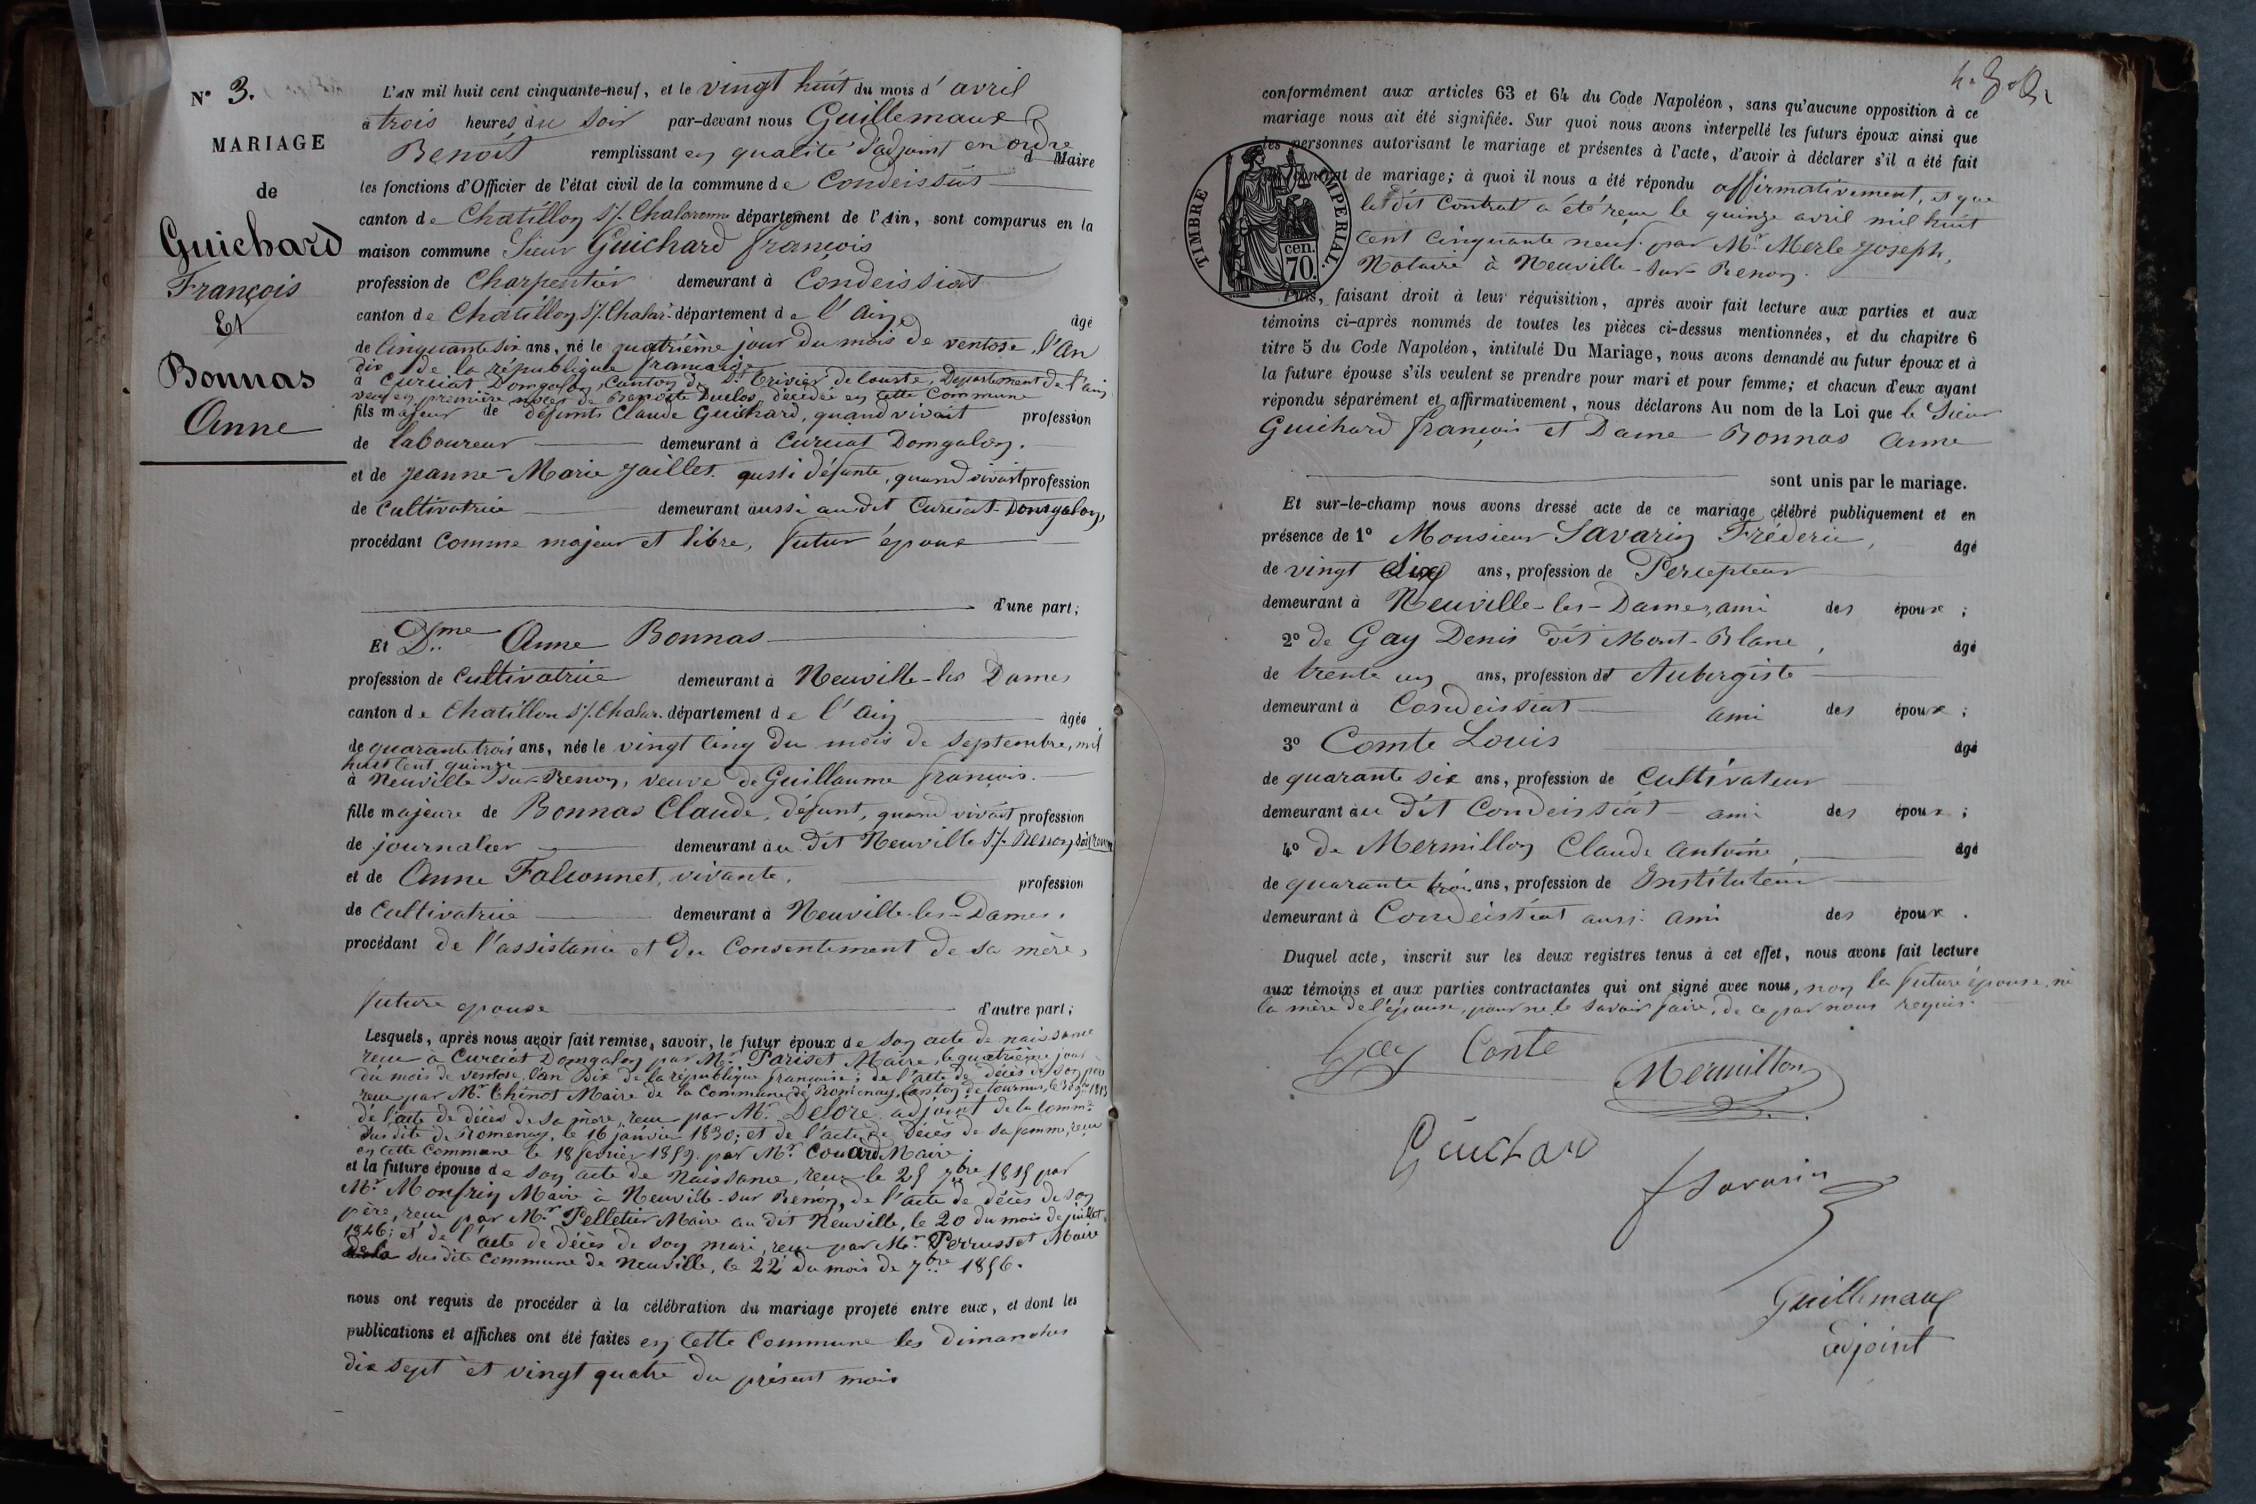 N° 3.
MARIAGE
de
Guichard
François
Et
Bonnas
Anne
L'AN mil huit cent cinquante-neuf, et le vingt huit du mois d'avril
à trois heures du soir par-devant nous Guillemaux
Benoit remplissant en qualité d'adjoint en ordre d Maire
les fonctions d'Officier de l'état civil de la commune de Condeissiat
canton de Chatillon s/. Chalaronne département de l'Ain, sont comparus en la
maison commune Sieur Guichard françois
profession de Charpentier demeurant à Condeissiat
canton de Chatillon s/. Chalar. département de l'Ain âgé
de Cinquante six ans, né le quatrième jour du mois de ventose, l'An
dix de la république française
à Curciat Domgalon, Canton de St. Trivier de Courte, Département de l'ain,
veuf en première noces de Benoite Duclos, décédée en cette Commune
fils majeur de défunts Claude Guichard, quand vivait profession
de laboureur demeurant à Curciat Domgalon.
et de Jeanne-Marie Jaillet aussi défunte, quand vivait profession
de Cultivatrice demeurant aussi au dit Curciat-Domgalon,
procédant Comme majeur et libre, futur époux
d'une part;
Et Dme Anne Bonnas
profession de Cultivatrice demeurant à Neuville-les Dames
canton de Chatillon s/. Chalar. département de l'Ain âgée
de quarante trois ans, née le vingt Cinq du mois de Septembre, mil
huit Cent quinze
à Neuville-sur-Renon, veuve de Guillaume françois.
fille majeure de Bonnas Claude, défunt, quand vivait profession
de journalier demeurant au dit Neuville s/. Renon
et de Anne Falconnet, vivante, profession
de Cultivatrice demeurant à Neuville-les-Dames.
procédant de l'assistance et du Consentement de sa mère,
future epouse d'autre part;
Lesquels, après nous avoir fait remise, savoir, le futur époux de son acte de naissance
reçu à Curciat Domgalon par Mr. Pariset Maire, le quatrième jour
du mois de ventose, l'an Dix de la république française; de l'acte de décès de son père
reçu par Mr. Thénot Maire de la Commune de Romenay, Canton de Tournus, le 1813
de l'acte de décès de sa mère, reçu par Mr. Delore adjoint de la Comm.
sus dite de Romenay, le 16 janvier 1830; et de l'acte de décès de sa femme, reçu
en cette Commune le 18 fevrier 1859. par Mr. Couard Maire;
et la future épouse de son acte de Naissance, reçu le 25 7bre 1815 par
Mr. Monfrin Maire à Neuville-sur Renon, de l'acte de décès de son
père, reçu par Mr. Pelletier Maire au dit Neuville, le 20 du mois de juillet
1846; et de l'acte de décès de son mari, reçu par Mr. Perrusset Maire
de la sus dite Commune de Neuville, le 22 du mois de 7bre 1856.
nous ont requis de procéder à la célébration du mariage projeté entre eux, et dont les
publications et affiches ont été faites en Cette Commune les dimanches
dix sept et vingt quatre du présent mois
conformément aux articles 63 et 64 du Code Napoléon, sans qu'aucune opposition à ce
mariage nous ait été signifiée. Sur quoi nous avons interpellé les futurs époux ainsi que
les personnes autorisant le mariage et présentes à l'acte, d'avoir à déclarer s'il a été fait
contrat de mariage; à quoi il nous a été répondu affirmativement, et que
le dit Contrat a été reçu le quinze avril mil huit
Cent Cinquante neuf. par Mr. Merle Joseph,
Notaire à Neuville-Sur-Renon.
TIMBRE IMPERIAL.
cen.
70.
Puis, faisant droit à leur réquisition, après avoir fait lecture aux parties et aux
témoins ci-après nommés de toutes les pièces ci-dessus mentionnées, et du chapitre 6
titre 5 du Code Napoléon, intitulé Du Mariage, nous avons demandé au futur époux et à
la future épouse s'ils veulent se prendre pour mari et pour femme; et chacun d'eux ayant
répondu séparément et affirmativement, nous déclarons Au nom de la Loi que le Sieur
Guichard françois et Dame Bonnas Anne
sont unis par le mariage.
Et sur-le-champ nous avons dressé acte de ce mariage célébré publiquement et en
présence de 1° Monsieur Savarin Fréderic, âgé
de vingt six ans, profession de Percepteur
demeurant à Neuville-les-Dames, ami des époux;
2° de Gay Denis dit Mont-Blanc, âgé
de trente un ans, profession de Aubergiste
demeurant à Condeissiat ami des époux;
3° Comte Louis âgé
de quarante six ans, profession de Cultivateur
demeurant au dit Condeissiat ami des époux;
4° de Mermillon Claude Antoine, âgé
de quarante trois ans, profession de Instituteur
demeurant à Condeissiat aussi ami des époux.
Duquel acte, inscrit sur les deux registres tenus à cet effet, nous avons fait lecture
aux témoins et aux parties contractantes qui ont signé avec nous, non la future épouse, ni
la mère de l'épouse, pour ne le savoir faire, de ce par nous requis.
Gay Conte
Mermillon
Guichard
f Savarin
Guillemaux
adjoint